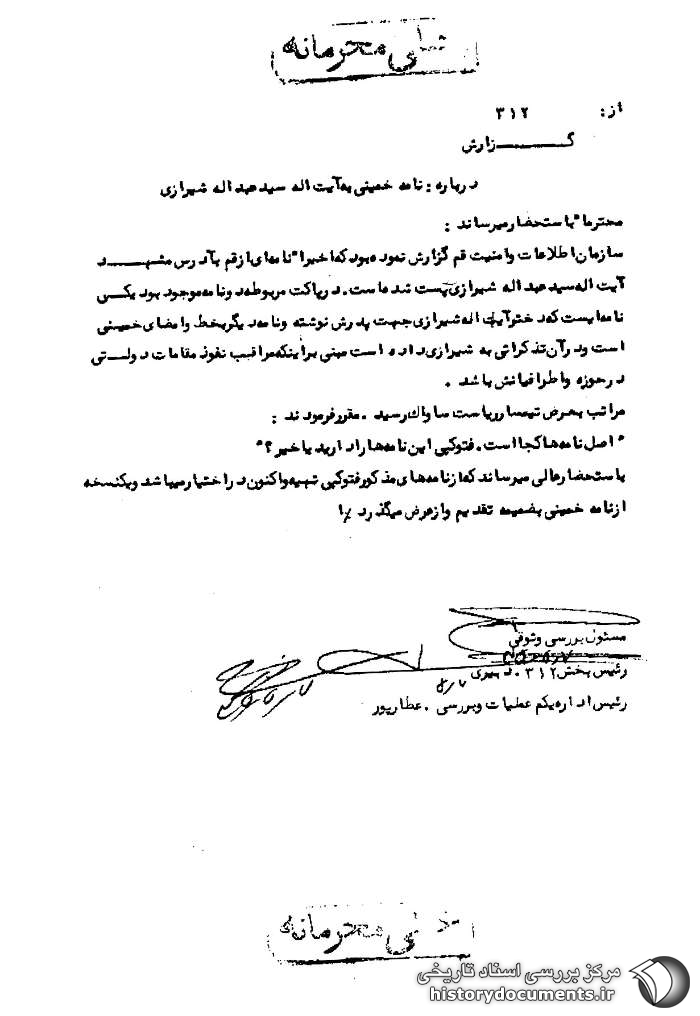 خیلی محرمانه
از: ۳۱۲
گـــــزارش
درباره: نامه خمینی به آیت اله سید عبداله شیرازی
محترما" باستحضار میرساند:
سازمان اطلاعات و امنیت قم گزارش نموده بود که اخیرا" نامه ای از قم بآدرس مشهـــد
آیت اله سید عبداله شیرازی پست شده است. در پاکت مربوطه دو نامه موجود بود یکـی
نامه ایست که دختر آیت اله شیرازی جهت پدرش نوشته و نامه دیگر بخط و امضای خمینی
است و در آن تذکراتی به شیرازی داده است مبنی بر اینکه مراقب نفوذ مقامات دولـتی
در حوزه و اطرافیانش باشد.
مراتب بعرض تیمسار ریاست ساواک رسید. مقرر فرمودند:
"اصل نامه ها کجا است. فتوکپی این نامه ها را دارید یا خیر؟"
باستحضار عالی میرساند که از نامه های مذکور فتوکپی تهیه و اکنون در اختیار میباشد و یکنسخه
از نامه خمینی بضمیمه تقدیم و از عرض میگذرد
مسئول بررسی وثوقی
رئیس بخش ۳۱۲.
رئیس اداره یکم عملیات و بررسی. عطارپور
خیلی محرمانه
مرکز بررسی اسناد تاریخی
historydocuments.ir